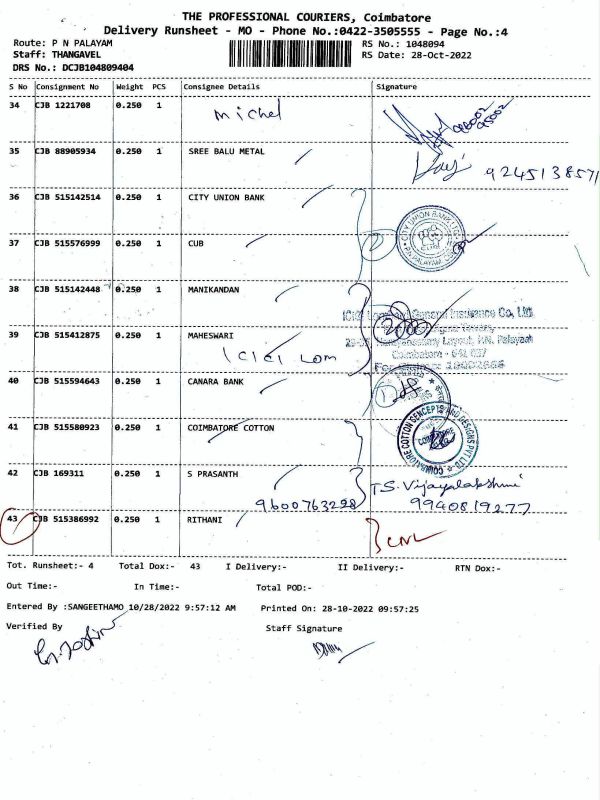 THE PROFESSIONAL COURIERS, Coimbatore
Delivery Runsheet - MO - Phone No.:0422-3505555 - Page No.:4
Route: P N PALAYAM
Staff: THANGAVEL
DRS No.: DCJB104809404
RS No.: 1048094
RS Date: 28-Oct-2022
S No Consignment No Weight PCS Consignee Details Signature
34 CJB 1221708 0.250 1 Michel
35 CJB 88905934 0.250 1 SREE BALU METAL 9245138571
36 CJB 515142514 0.250 1 CITY UNION BANK
CITY UNION BANK LTD.
37 CJB 515576999 0.250 1 CUB
38 CJB 515142448 0.250 1 MANIKANDAN
ICICI Lombard General Insurance Co, Ltd
39 CJB 515412875 0.250 1 MAHESWARI
ICICI Lom
Coimbatore - 641 037
40 CJB 515594643 0.250 1 CANARA BANK
41 CJB 515580923 0.250 1 COIMBATORE COTTON
COIMBATORE COTTON CONCEPTS AND DESIGNS PVT LTD
42 CJB 169311 0.250 1 S PRASANTH T.S. Vijayalakshmi
9600763228 9940819277
43 CJB 515386992 0.250 1 RITHANI CNL
Tot. Runsheet:- 4 Total Dox:- 43 I Delivery:- II Delivery:- RTN Dox:-
Out Time:- In Time:- Total POD:-
Entered By :SANGEETHAMO 10/28/2022 9:57:12 AM Printed On: 28-10-2022 09:57:25
Verified By Staff Signature